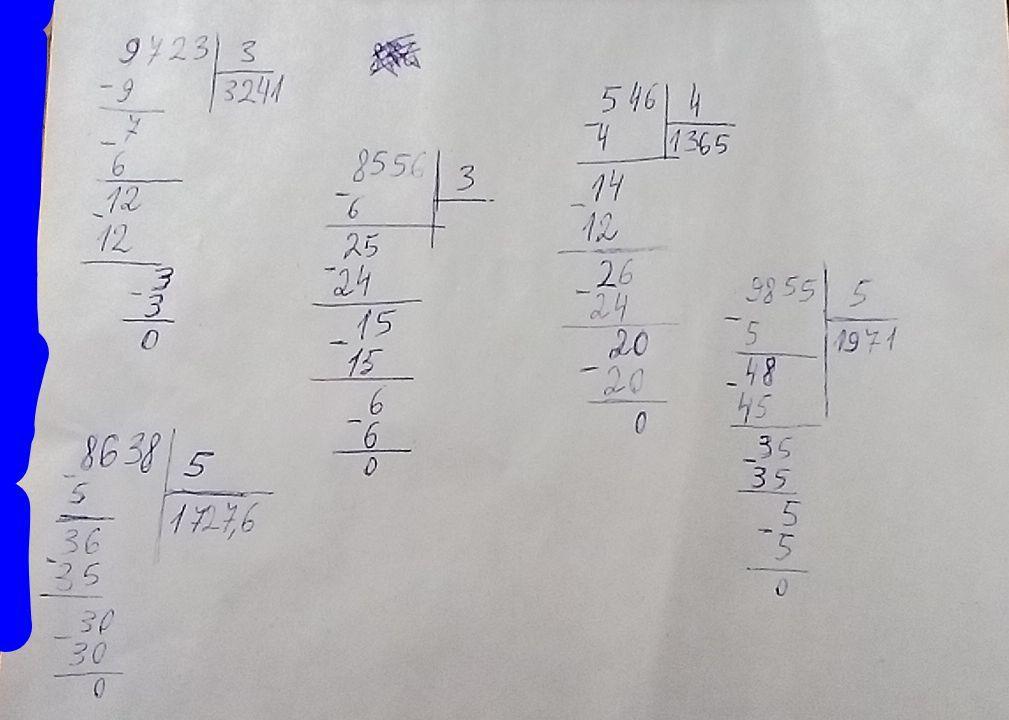 9723 3
-9 3241
-7
6
-12
12
-3
3
0
8556 3
-6
25
-24
-15
15
6
-6
0
546 4
-4 1365
-14
12
-26
24
20
-20
0
9855 5
-5 1971
-48
45
-35
35
5
-5
0
-8638 5
5 1727,6
-36
35
-30
30
0